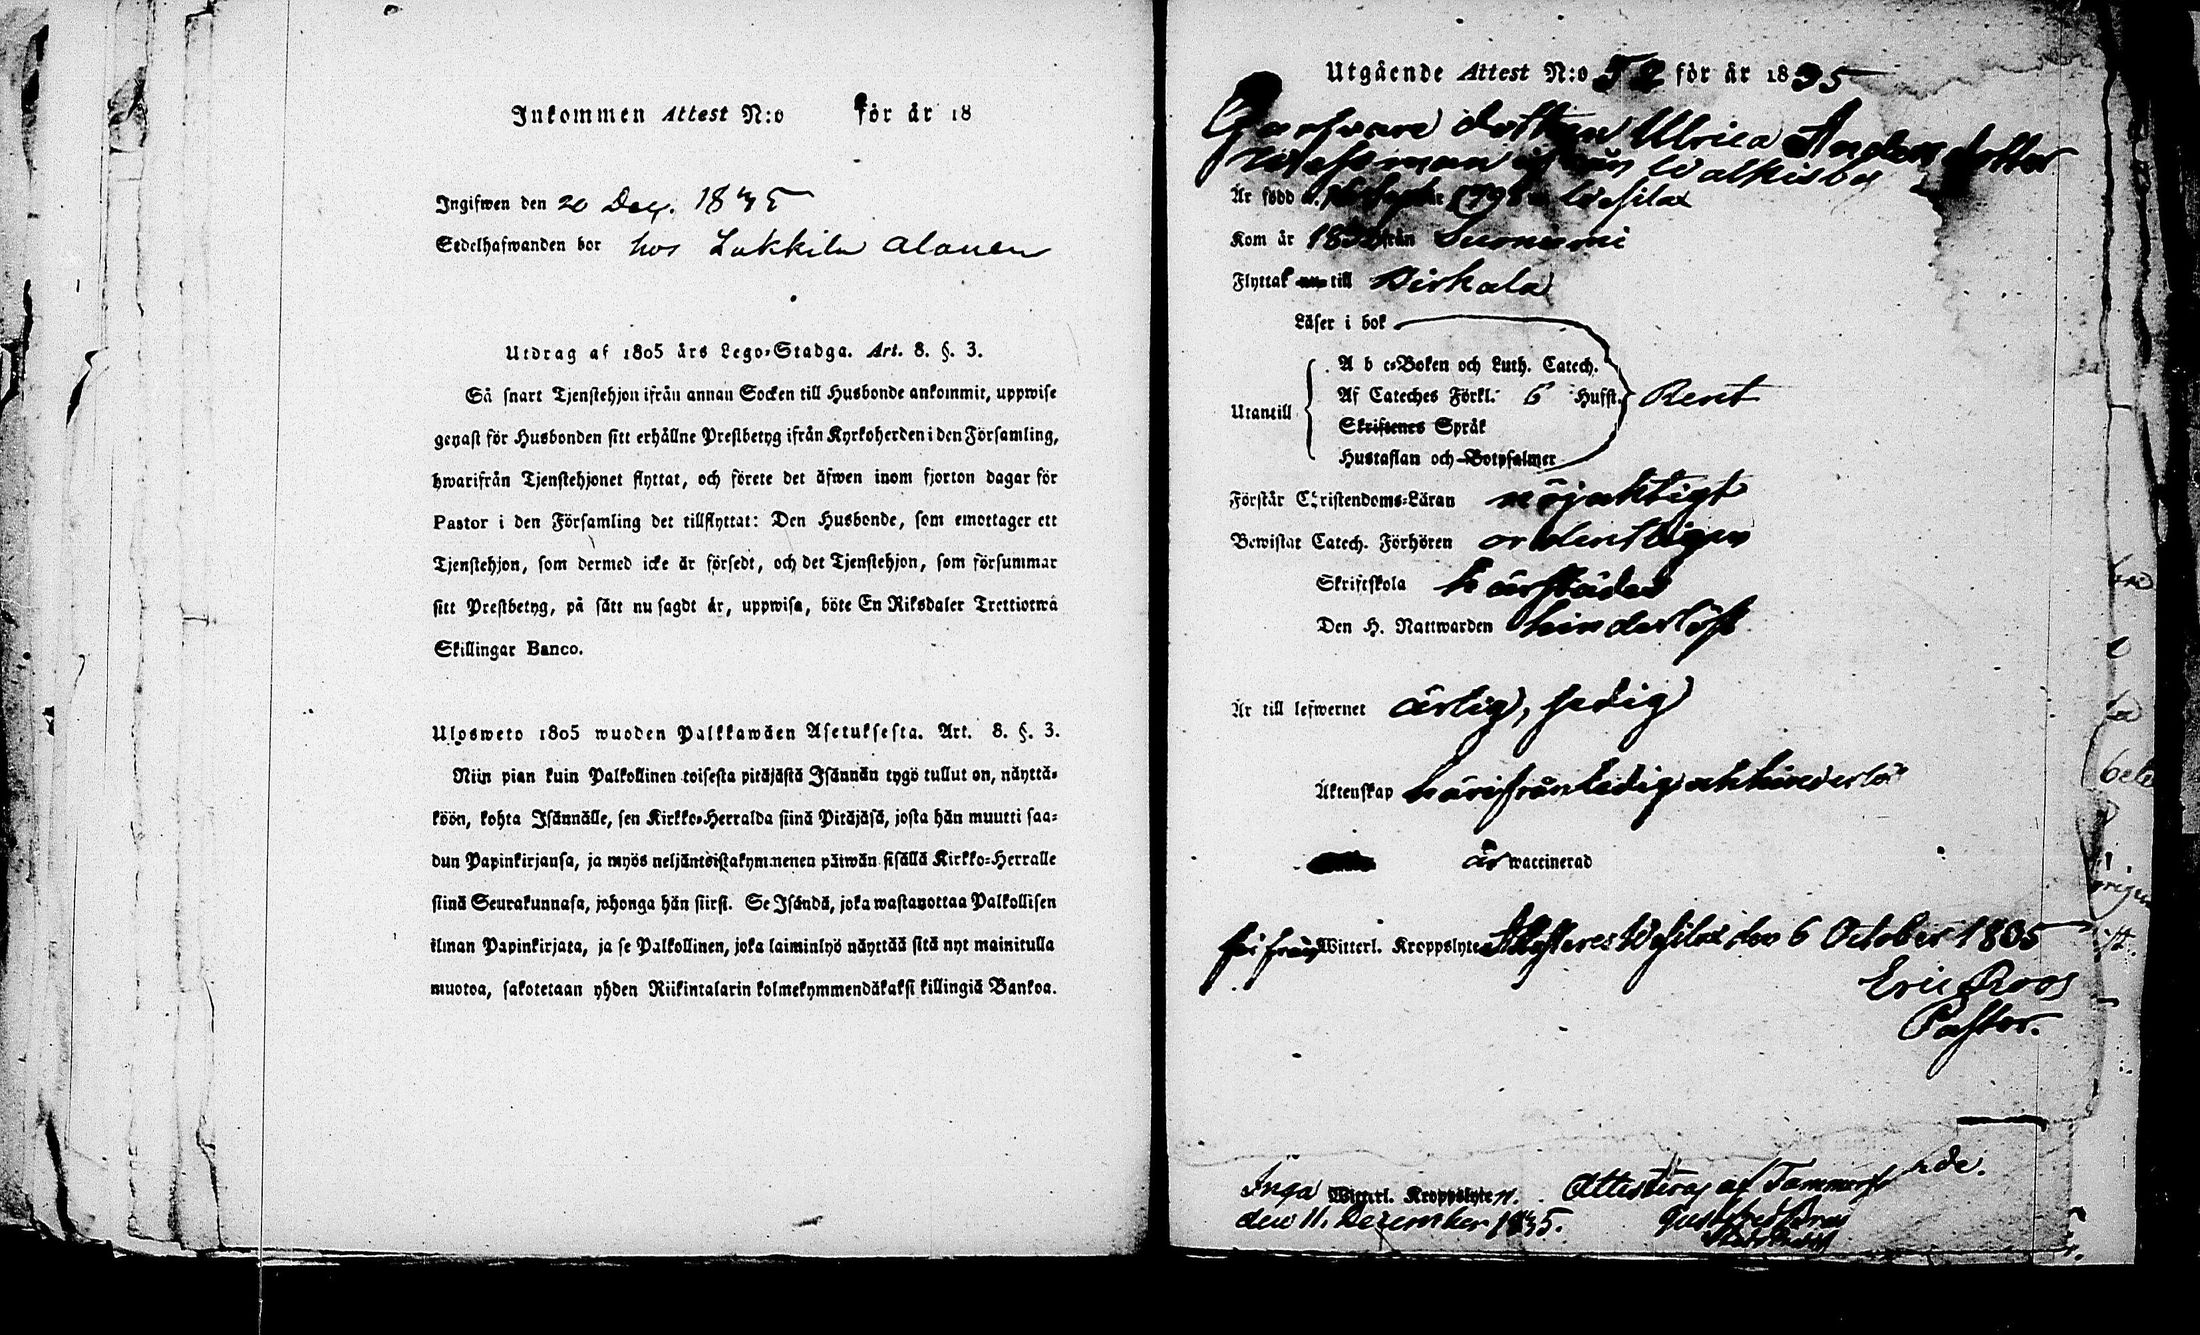 Inkommen Attest N:o för år 18
Ingifwen den 20 Dec. 1835
Sedelhafwanden bor hos Lukkila Alanen
Utdrag af 1805 års Lego-Stadga. Art. 8. §. 3.
Så snart Tjenstehjon ifrån annan Socken till Husbonde ankommit, uppwise
genast för Husbonden sitt erhållne Prestbetyg ifrån Kyrkoherden i den Församling,
hwarifrån Tjenstehjonet flyttat, och förete det äfwen inom fjorton dagar för
Pastor i den Församling det tillflyttat: Den Husbonde, som emottager ett
Tjenstehjon, som dermed icke är försedt, och det Tjenstehjon, som försummar
sitt Prestbetyg, på sätt nu sagdt är, uppwisa, böte En Riksdaler Trettiotwå
Skillingar Banco.
Ulosweto 1805 wuoden Palkkawäen Asetuksesta. Art. 8. §. 3.
Niin pian kuin Palkollinen toisesta pitäjästä Isännän tygö tullut on, näyttä-
köön, kohta Isännälle, sen Kirkko-Herralda siinä Pitäjäsä, josta hän muutti saa-
dun Papinkirjansa, ja myös neljäntoistakymmenen päiwän sisällä Kirkko-Herralle
siinä Seurakunnasa, johonga hän siirsi. Se Isändä, joka wastanottaa Palkollisen
ilman Papinkirjata, ja se Palkollinen, joka laiminlyö näyttää sitä nyt mainitulla
muotoa, sakotetaan yhden Riikintalarin kolmekymmendäkaksi killingiä Bankoa.
Utgående Attest N:o 52 för år 1835
Garfvare dottren Ulrica Anders dotter
Wessman ifrån Walkisby
Är född d. Septbr i Wesilax
Kom år 183 från Suoniemi
Flyttat nu till Birkala
Läser i bok
A b c-Boken och Luth. Catech.
Af Cateches Förkl. 6 Hufst. Rent
Utantill
Skriftenes Språk
Hustaflan och Botpsalmer
Förstår Christendoms-Läran nöjaktigt
Bewistat Catech. Förhören ordentligen
Skriftskola härstädes
Den H. Nattwarden hinderlöst
Är till lefwernet ärlig, sedig
Äktenskap härifrån ledig och hinderlös
är waccinerad
fri från Witterl. Kroppslyte Attesteres Wesilax den 6 October 1835
Eric Roos
Pastor.
Inga Witterl. Kroppslyten. Attesteras af Tammerfors
den 11. December 1835.